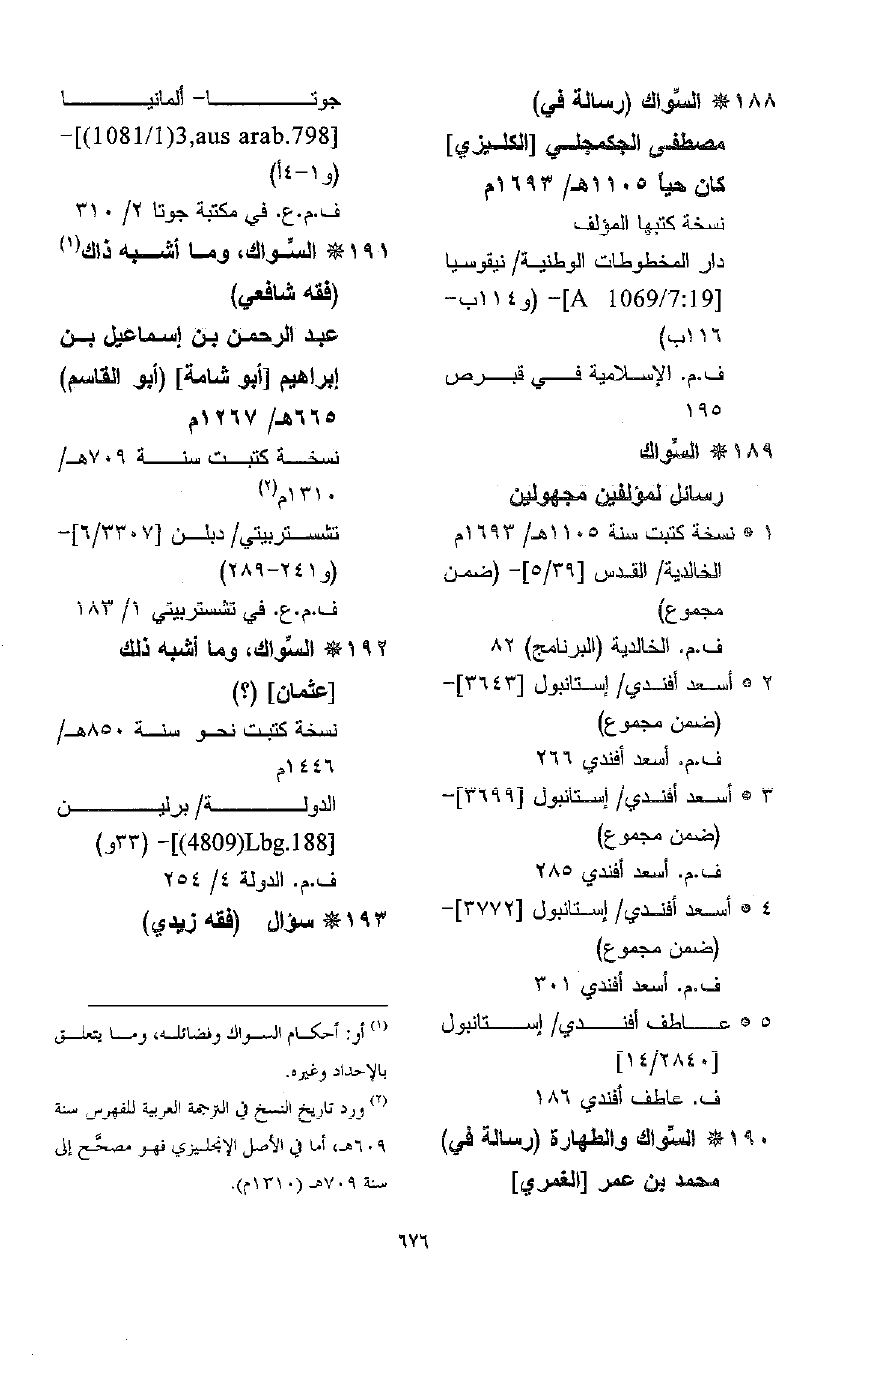 ١٨٨ * السِّواك (رسالة في)
مصطفى الجكمجلي [الكليزي]
كان حياً ١١٠٥هـ/ ١٦٩٣م
نسخة كتبها المؤلف
دار المخطوطات الوطنية/ نيقوسيا
[A 1069/7:19]- (و١١٤ب-
١١٦ب)
ف.م. الإسلامية في قبرص
١٩٥
١٨٩ * السِّواك
رسائل لمؤلفين مجهولين
١ * نسخة كتبت سنة ١١٠٥هـ/ ١٦٩٣م
الخالدية/ القدس [٥/٣٩]- (ضمن
مجموع)
ف.م. الخالدية (البرنامج) ٨٢
٢ * أسعد أفندي/ إستانبول [٣٦٤٣]-
(ضمن مجموع)
ف.م. أسعد أفندي ٢٦٦
٣ * أسعد أفندي/ إستانبول [٣٦٩٩]-
(ضمن مجموع)
ف.م. أسعد أفندي ٢٨٥
٤ * أسعد أفندي/ إستانبول [٣٧٧٢]-
(ضمن مجموع)
ف.م. أسعد أفندي ٣٠١
٥ * عاطف أفندي/ إستانبول
[١٤/٢٨٤٠]
ف. عاطف أفندي ١٨٦
١٩٠ * السِّواك والطهارة (رسالة في)
محمد بن عمر [الغمري]
جوتا- ألمانيا
[(1081/1)3,aus arab.798]-
(و١-٤أ)
ف.م.ع. في مكتبة جوتا ٢/ ٣١٠
١٩١ * السِّواك، وما أشبه ذاك(١)
(فقه شافعي)
عبد الرحمن بن إسماعيل بن
إبراهيم [أبو شامة] (أبو القاسم)
٦٦٥هـ/ ١٢٦٧م
نسخة كتبت سنة ٧٠٩هـ/
١٣١٠م(٢)
تشستربيتي/ دبلن [٦/٣٣٠٧]-
(و٢٤١-٢٨٩)
ف.م.ع. في تشستربيتي ١/ ١٨٣
١٩٢ * السِّواك، وما أشبه ذلك
[عثمان] (؟)
نسخة كتبت نحو سنة ٨٥٠هـ/
١٤٤٦م
الدولة/ برلين
[(4809)Lbg.188]- (٣٣و)
ف.م. الدولة ٤/ ٢٥٤
١٩٣ * سؤال (فقه زيدي)
(١) أو: أحكام السواك وفضائله، وما يتعلق
بالإحداد وغيره.
(٢) ورد تاريخ النسخ في الترجمة العربية للفهرس سنة
٦٠٩هـ، أما في الأصل الإنجليزي فهو مصحَّح إلى
سنة ٧٠٩هـ (١٣١٠م).
٦٧٦